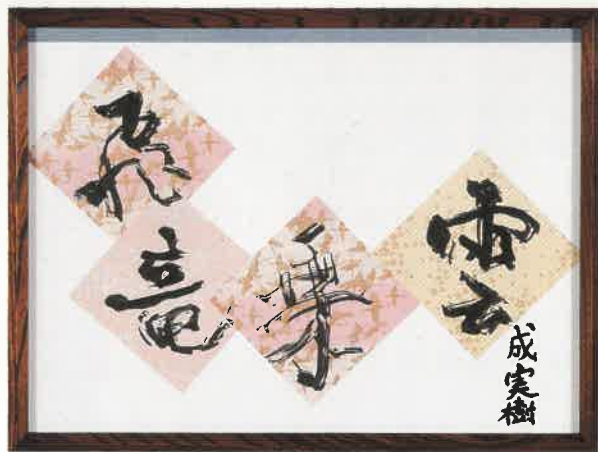 飛竜乗雲
成実樹